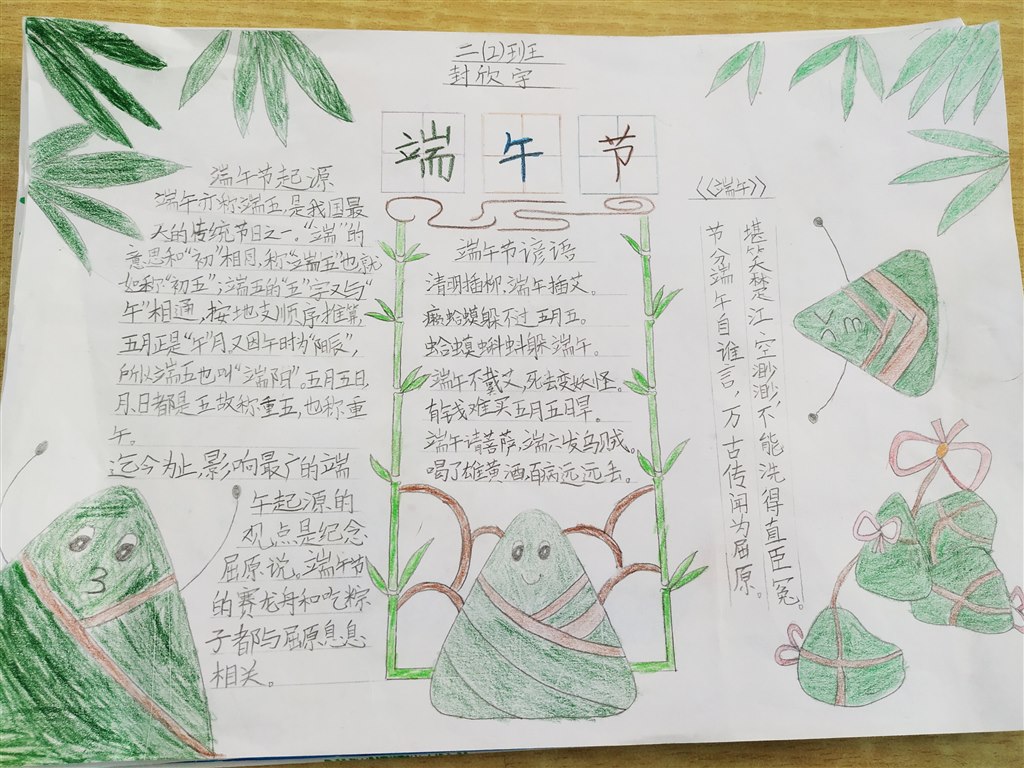 二(2)班
封欣宇
端午节
端午节起源
端午亦称端五,是我国最
大的传统节日之一。"端"的
意思和"初"相同,称"端五"也就
如称"初五";端五的"五"字又与"
午"相通,按地支顺序推算,
五月正是"午"月。又因午时为"阳辰",
所以端五也叫"端阳"。五月五日,
月、日都是五,故称重五,也称重
午。
迄今为止,影响最广的端
午起源的
观点是纪念
屈原说。端午节
的赛龙舟和吃粽
子都与屈原息息
相关。
端午节谚语
清明插柳,端午插艾。
癞蛤蟆躲不过五月五。
蛤蟆蝌蚪躲端午。
端午不戴艾,死去变妖怪。
有钱难买五月五日旱。
端午请菩萨,端六发乌贼。
喝了雄黄酒,百病远远丢。
《端午》
节分端午自谁言,万古传闻为屈原。
堪笑楚江空渺渺,不能洗得直臣冤。